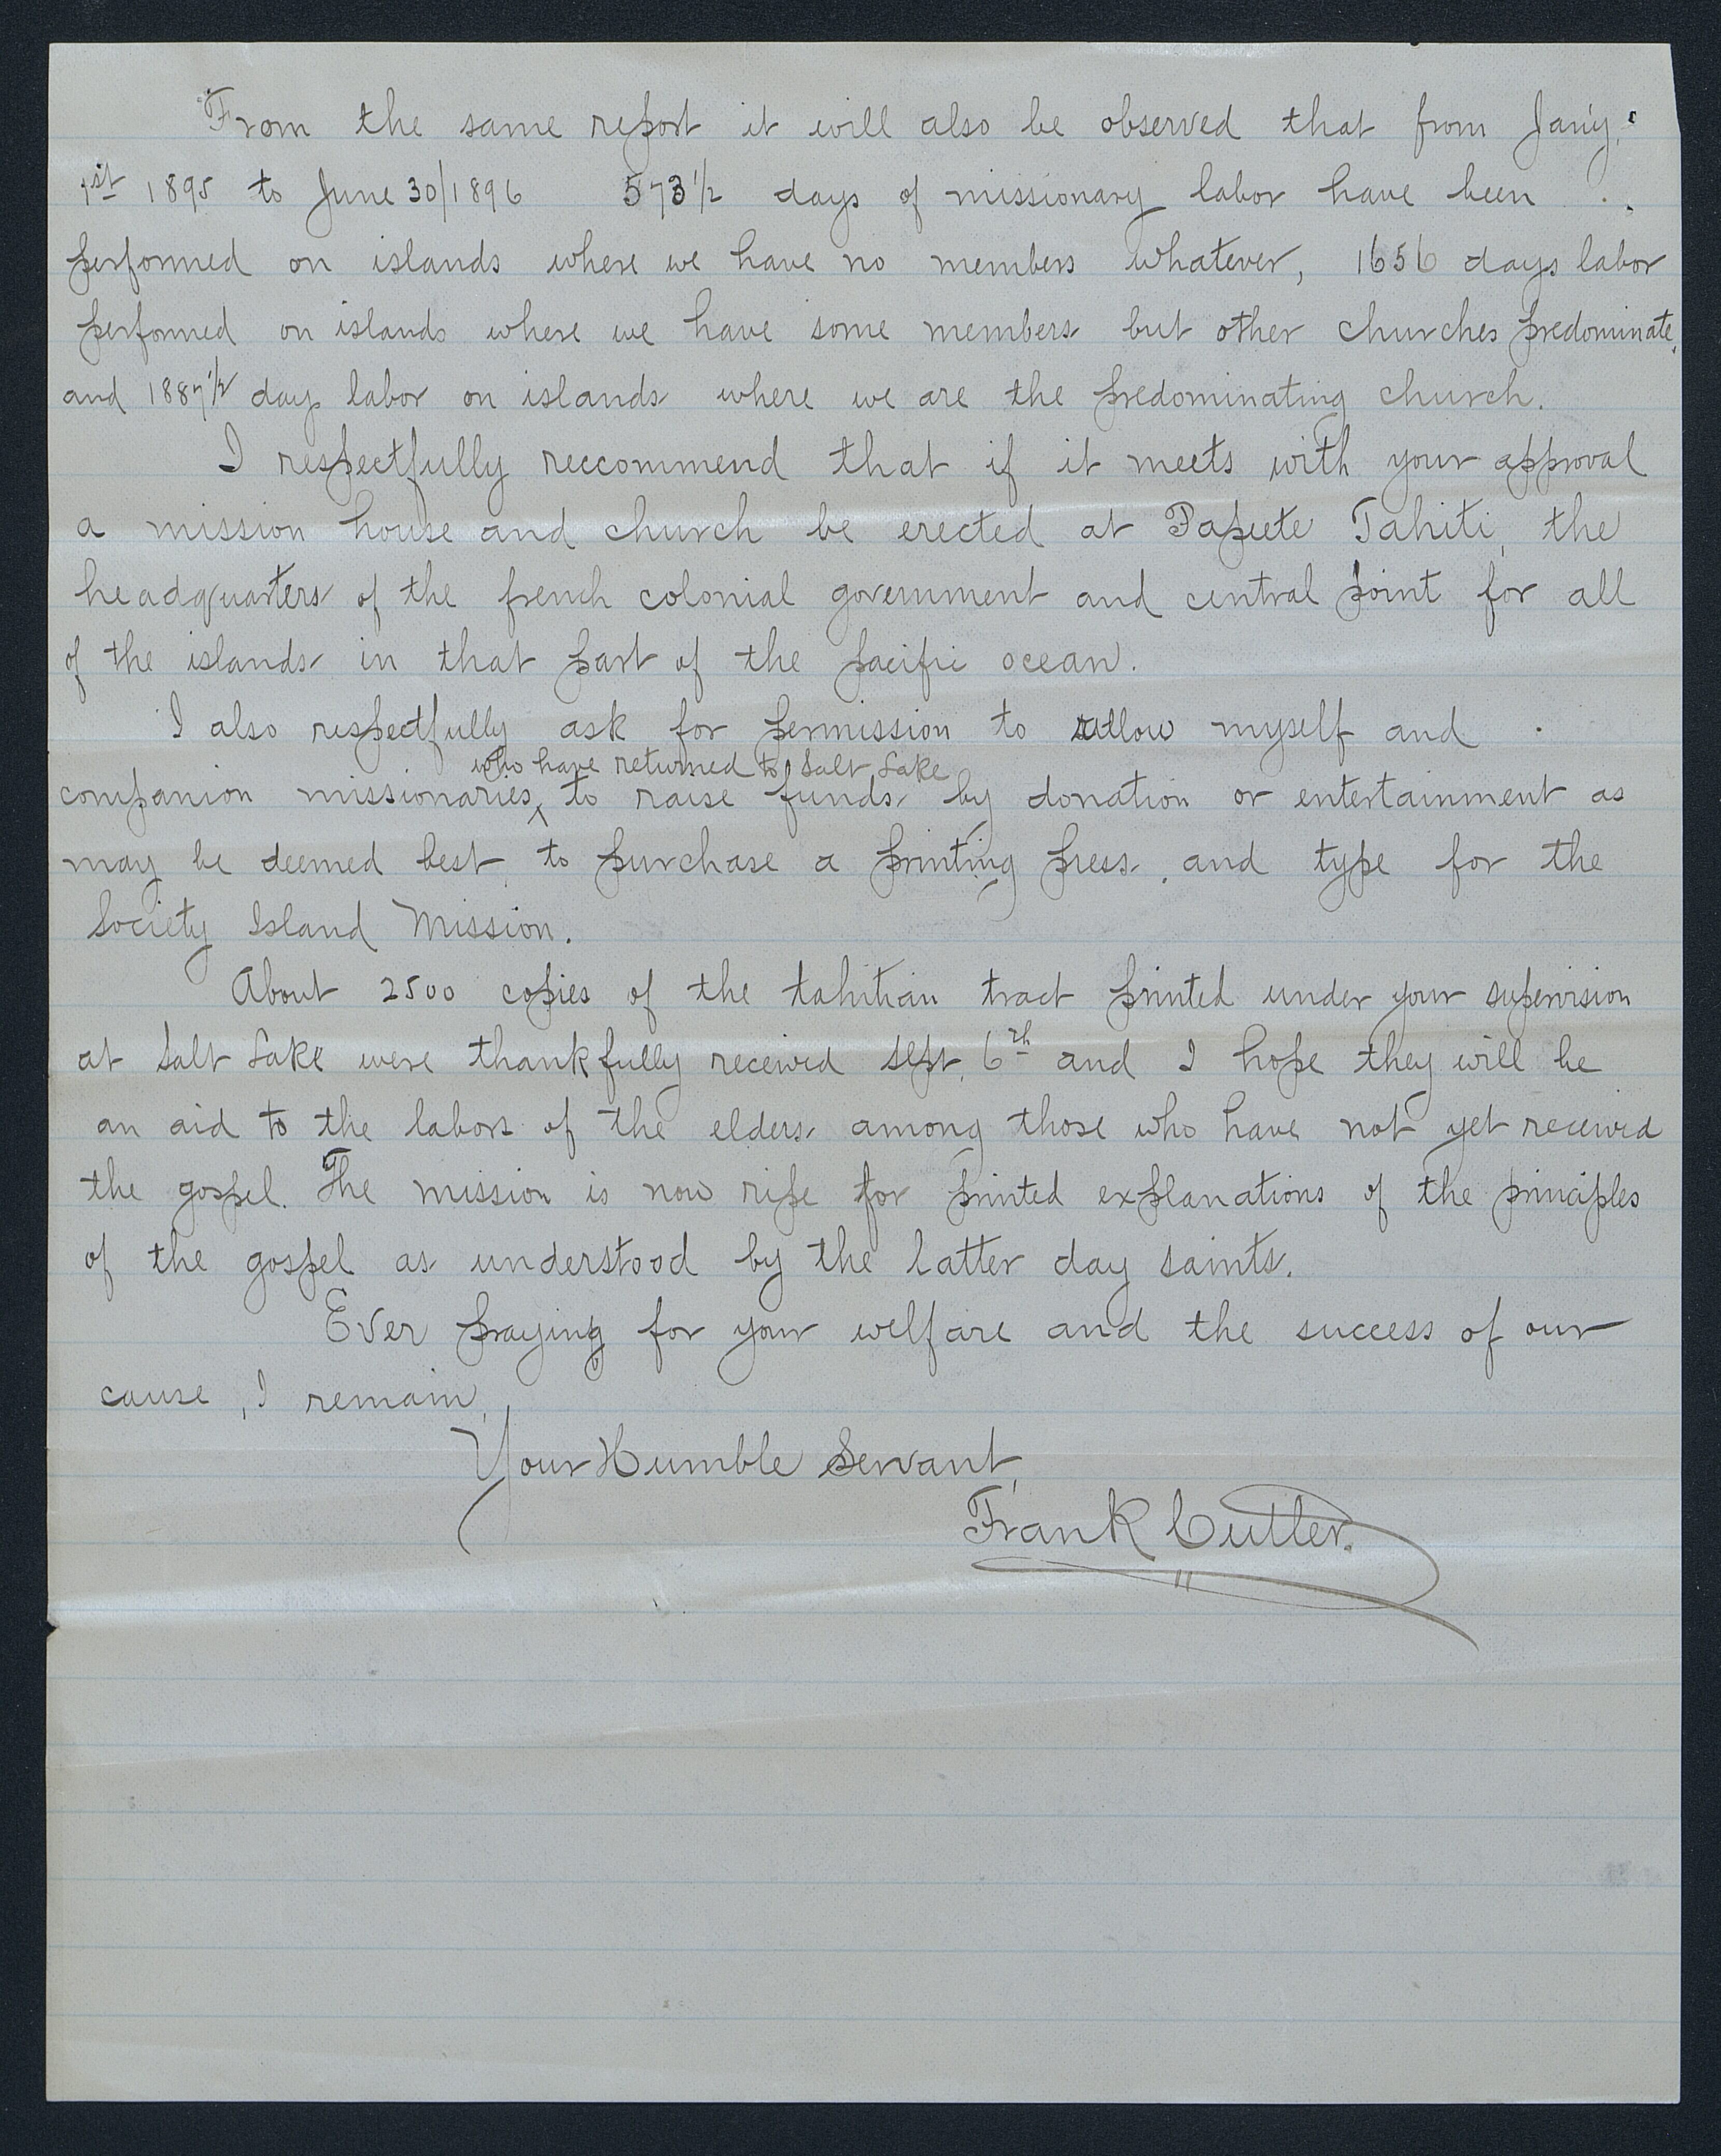 From the same report it will also be observed that from Jan'y.
1st 1895 to June 30/1896 573 1/2 days of missionary labor have been
performed on islands where we have no members whatever, 1656 days labor
performed on islands where we have some members but other churches predominate,
and 1887 1/2 day labor on islands where we are the predominating church.
I respectfully reccommend that if it meets with your approval
a mission house and church be erected at Papeete Tahiti, the
headquarters of the french colonial government and central point for all
of the islands in that part of the pacific ocean.
I also respectfully ask for permission to allow myself and
who have returned to Salt Lake
companion missionaries, ^ to raise funds by donation or entertainment as
may be deemed best, to purchase a printing press, and type for the
Society Island Mission.
About 2500 copies of the tahitian tract printed under your supervision
at Salt Lake were thankfully received Sept. 6th and I hope they will be
an aid to the labors of the elders among those who have not yet received
the gospel. The mission is now ripe for printed explanations of the principles
of the gospel as understood by the latter day saints.
Ever praying for your welfare and the success of our
cause, I remain,
Your Humble Servant,
Frank Cutler.